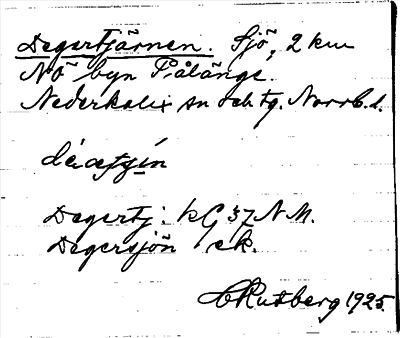 Degertjärnen. Sjö, 2 km
NÖ byn Pålänge.
Nederkalix sn och tg. Norrb. l.
Degertj: kG 37 NM.
Degersjön ek.
CRutberg 1925.